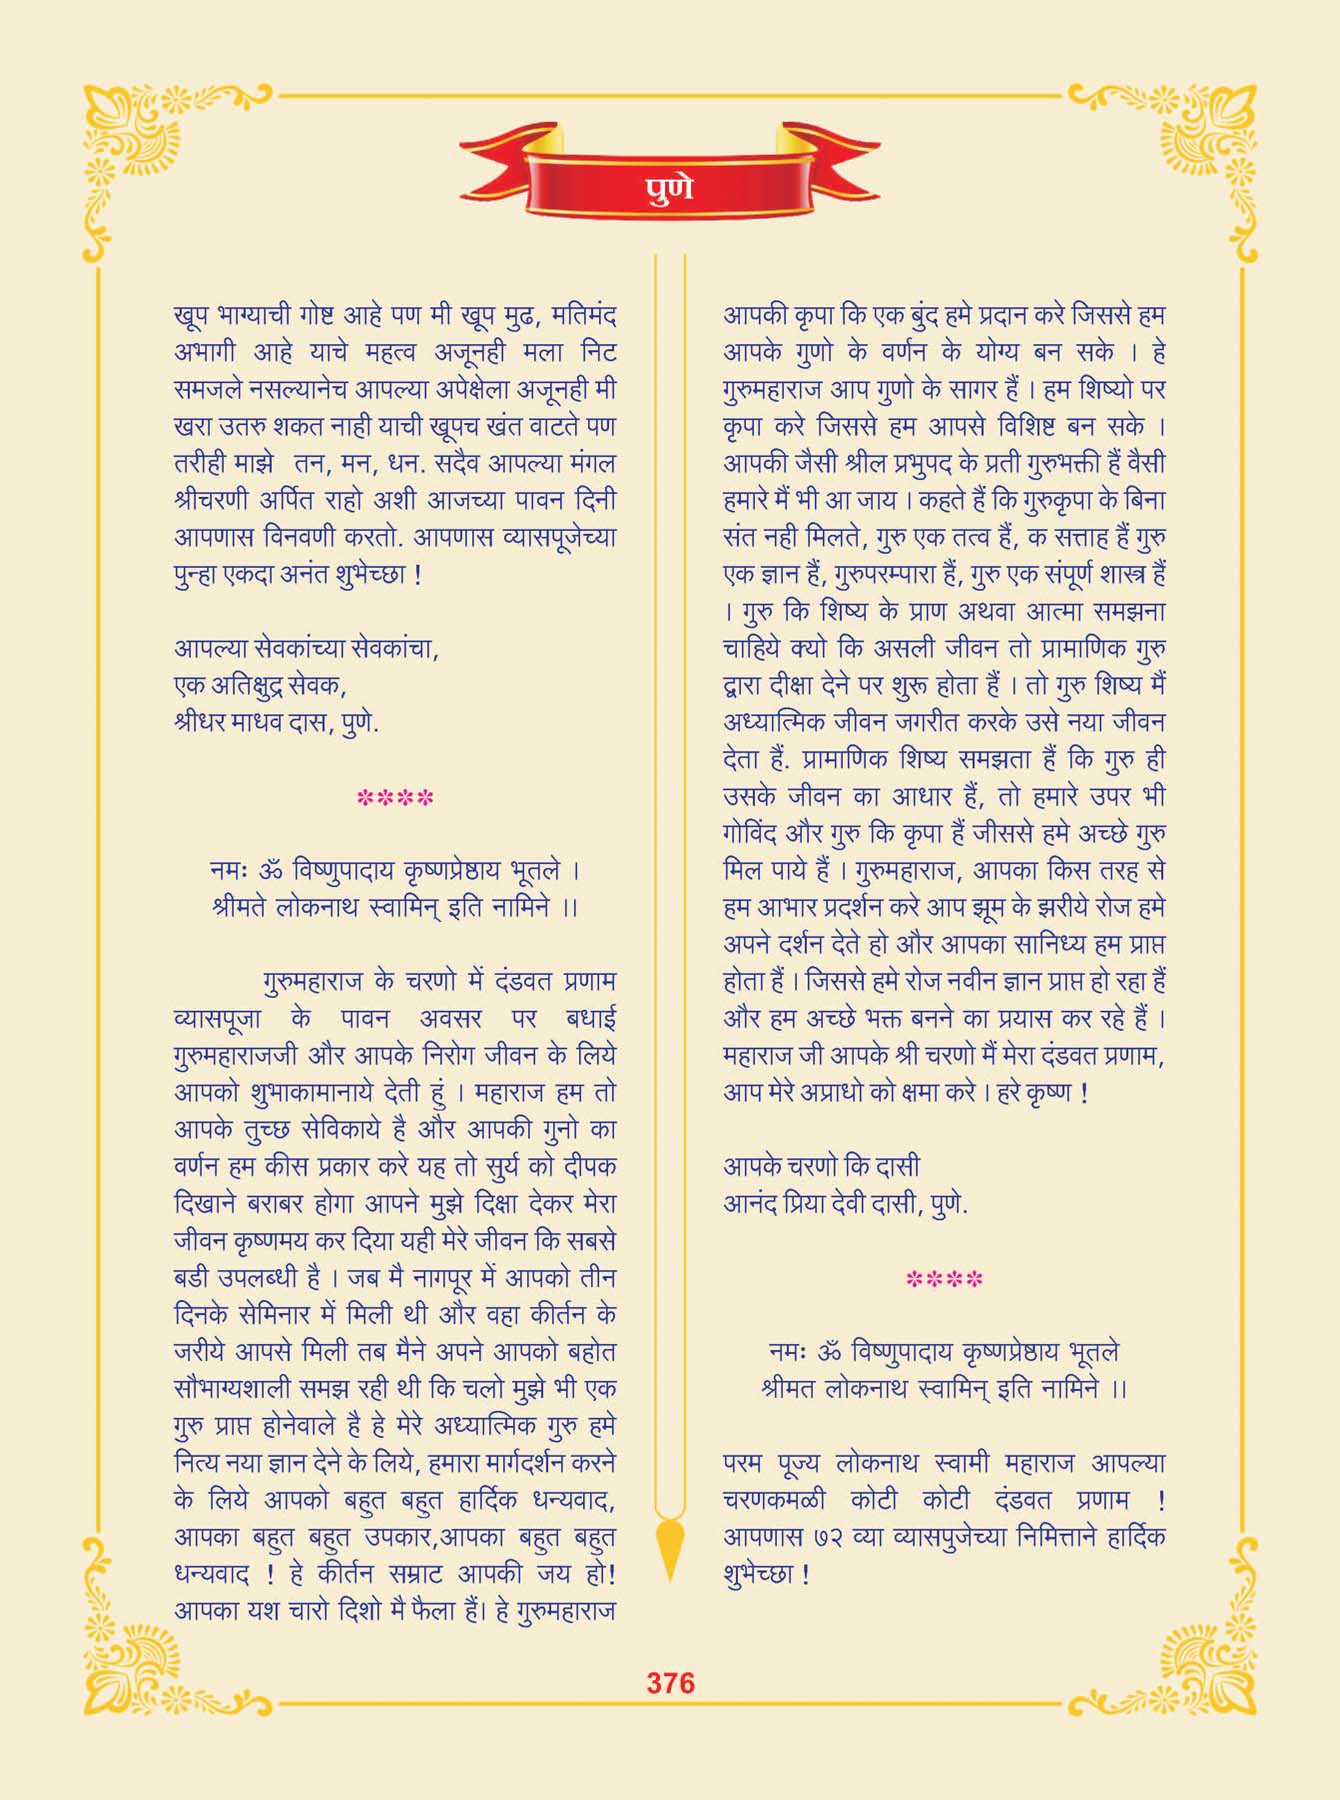 पुणे
खूप भाग्याची गोष्ट आहे पण मी खूप मुढ, मतिमंद
अभागी आहे याचे महत्व अजूनही मला निट
समजले नसल्यानेच आपल्या अपेक्षेला अजूनही मी
खरा उतरु शकत नाही याची खूपच खंत वाटते पण
तरीही माझे तन, मन, धन. सदैव आपल्या मंगल
श्रीचरणी अर्पित राहो अशी आजच्या पावन दिनी
आपणास विनवणी करतो. आपणास व्यासपूजेच्या
पुन्हा एकदा अनंत शुभेच्छा !
आपल्या सेवकांच्या सेवकांचा,
एक अतिक्षुद्र सेवक,
श्रीधर माधव दास, पुणे.
****
नमः ॐ विष्णुपादाय कृष्णप्रेष्ठाय भूतले ।
श्रीमते लोकनाथ स्वामिन् इति नामिने ।।
गुरुमहाराज के चरणो में दंडवत प्रणाम
व्यासपूजा के पावन अवसर पर बधाई
गुरुमहाराजजी और आपके निरोग जीवन के लिये
आपको शुभाकामानाये देती हुं । महाराज हम तो
आपके तुच्छ सेविकाये है और आपकी गुनो का
वर्णन हम कीस प्रकार करे यह तो सुर्य को दीपक
दिखाने बराबर होगा आपने मुझे दिक्षा देकर मेरा
जीवन कृष्णमय कर दिया यही मेरे जीवन कि सबसे
बडी उपलब्धी है । जब मै नागपूर में आपको तीन
दिनके सेमिनार में मिली थी और वहा कीर्तन के
जरीये आपसे मिली तब मैने अपने आपको बहोत
सौभाग्यशाली समझ रही थी कि चलो मुझे भी एक
गुरु प्राप्त होनेवाले है हे मेरे अध्यात्मिक गुरु हमे
नित्य नया ज्ञान देने के लिये, हमारा मार्गदर्शन करने
के लिये आपको बहुत बहुत हार्दिक धन्यवाद,
आपका बहुत बहुत उपकार,आपका बहुत बहुत
धन्यवाद ! हे कीर्तन सम्राट आपकी जय हो!
आपका यश चारो दिशो मै फैला हैं। हे गुरुमहाराज
आपकी कृपा कि एक बुंद हमे प्रदान करे जिससे हम
आपके गुणो के वर्णन के योग्य बन सके । हे
गुरुमहाराज आप गुणो के सागर हैं । हम शिष्यो पर
कृपा करे जिससे हम आपसे विशिष्ट बन सके ।
आपकी जैसी श्रील प्रभुपद के प्रती गुरुभक्ती हैं वैसी
हमारे मैं भी आ जाय । कहते हैं कि गुरुकृपा के बिना
संत नही मिलते, गुरु एक तत्व हैं, क सत्ताह हैं गुरु
एक ज्ञान हैं, गुरुपरम्पारा हैं, गुरु एक संपूर्ण शास्त्र हैं
। गुरु कि शिष्य के प्राण अथवा आत्मा समझना
चाहिये क्यो कि असली जीवन तो प्रामाणिक गुरु
द्वारा दीक्षा देने पर शुरू होता हैं । तो गुरु शिष्य मैं
अध्यात्मिक जीवन जगरीत करके उसे नया जीवन
देता हैं. प्रामाणिक शिष्य समझता हैं कि गुरु ही
उसके जीवन का आधार हैं, तो हमारे उपर भी
गोविंद और गुरु कि कृपा हैं जीससे हमे अच्छे गुरु
मिल पाये हैं । गुरुमहाराज, आपका किस तरह से
हम आभार प्रदर्शन करे आप झूम के झरीये रोज हमे
अपने दर्शन देते हो और आपका सानिध्य हम प्राप्त
होता हैं । जिससे हमे रोज नवीन ज्ञान प्राप्त हो रहा हैं
और हम अच्छे भक्त बनने का प्रयास कर रहे हैं ।
महाराज जी आपके श्री चरणो मैं मेरा दंडवत प्रणाम,
आप मेरे अप्राधो को क्षमा करे । हरे कृष्ण !
आपके चरणो कि दासी
आनंद प्रिया देवी दासी, पुणे.
****
नमः ॐ विष्णुपादाय कृष्णप्रेष्ठाय भूतले
श्रीमत लोकनाथ स्वामिन् इति नामिने ।।
परम पूज्य लोकनाथ स्वामी महाराज आपल्या
चरणकमळी कोटी कोटी दंडवत प्रणाम !
आपणास ७२ व्या व्यासपुजेच्या निमित्ताने हार्दिक
शुभेच्छा !
376